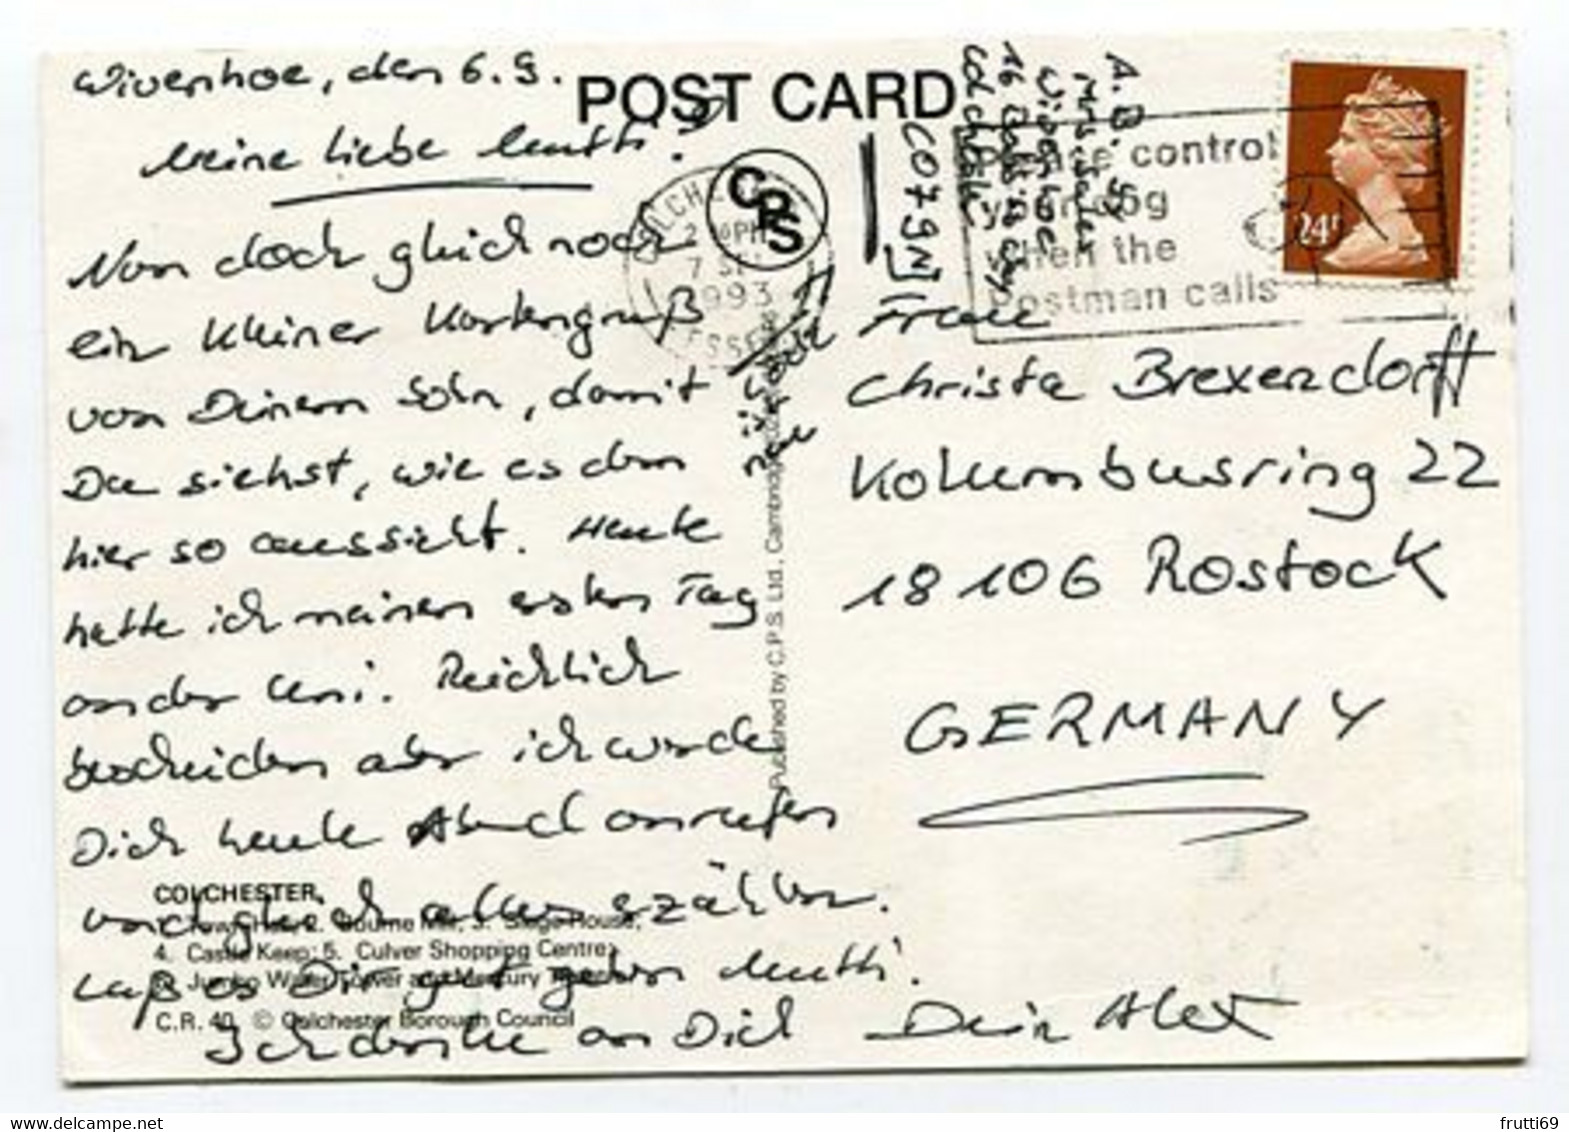 Wivenhoe, den 6.9.
Meine liebe Mutti!
Nun doch gleich noch
ein kleiner Kartengruß
von Deinem Sohn, damit
Du siehst, wie es denn
hier so aussieht. Heute
hatte ich meinen ersten Tag
an der Uni. Reichlich
bescheiden aber ich würde
Dich heute Abend anrufen
und gleich alles erzählen.
Laß es Dir gut gehen Mutti!
Ich denke an Dich Dein Alex
POST CARD
CPS
COLCHE
7 SP
1993
ESSE
Please control
your dog
when the
Postman calls
24P
A. B.
Mrs
Wivenhoe
16
Colchester
CO7 9N
Frau
Christa Brexendorff
Kolumbusring 22
18106 Rostock
GERMANY
Published by C.P.S. Ltd., Cambridge
COLCHESTER,
2. Bourne Mill, 3. Siege House,
4. Castle Keep; 5. Culver Shopping Centre;
Jumbo Water Tower and Mercury Theatre
C.R. 40 © Colchester Borough Council
frutti69